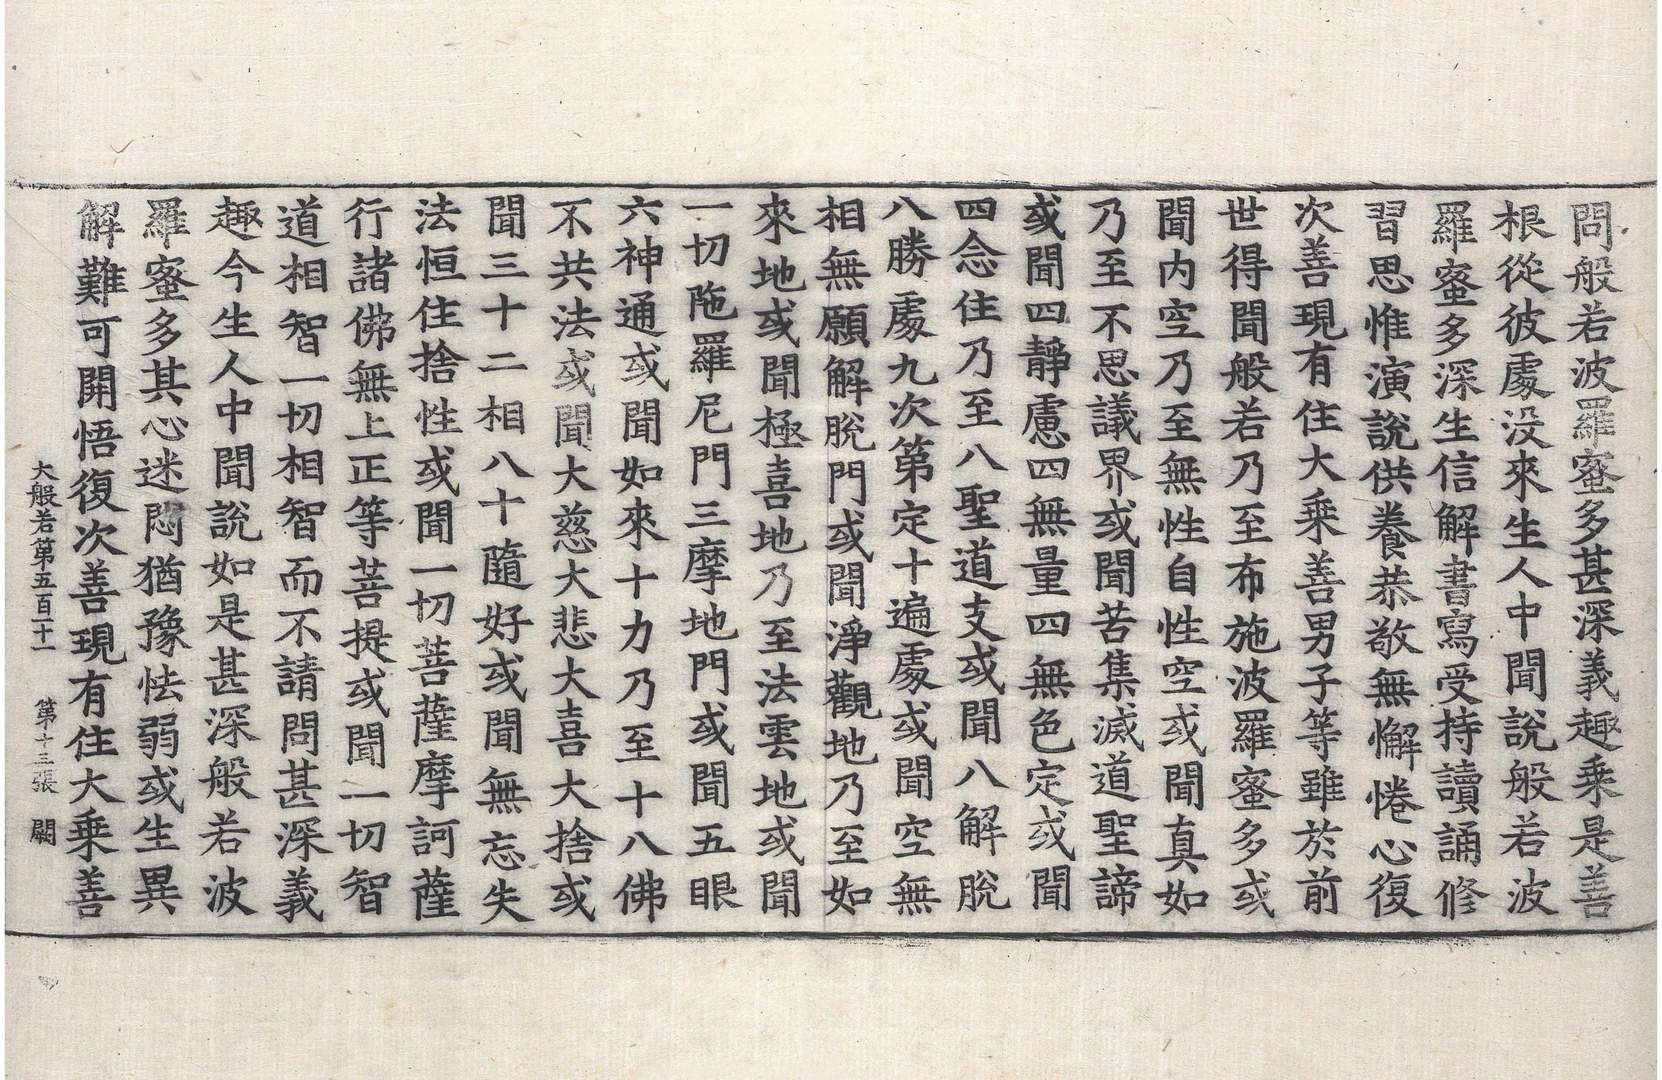 問般若波羅蜜多甚深義趣乘是善
根從彼處没來生人中聞說般若波
羅蜜多深生信解書寫受持讀誦修
習思惟演說供養恭敬無懈惓心復
次善現有住大乘善男子等雖於前
世得聞般若乃至布施波羅蜜多或
聞内空乃至無性自性空或聞真如
乃至不思議界或聞苦集滅道聖諦
或聞四靜慮四無量四無色定或聞
四念住乃至八聖道支或聞八解脫
八勝處九次第定十遍處或聞空無
相無願解脫門或聞淨觀地乃至如
來地或聞極喜地乃至法雲地或聞
一切陁羅尼門三摩地門或聞五眼
六神通或聞如來十力乃至十八佛
不共法或聞大慈大悲大喜大捨或
聞三十二相八十隨好或聞無忘失
法恒住捨性或聞一切菩薩摩訶薩
行諸佛無上正等菩提或聞一切智
道相智一切相智而不請問甚深義
趣今生人中聞說如是甚深般若波
羅蜜多其心迷悶猶豫怯弱或生異
解難可開悟復次善現有住大乘善
大般若第五百二十一 第十三張 闕